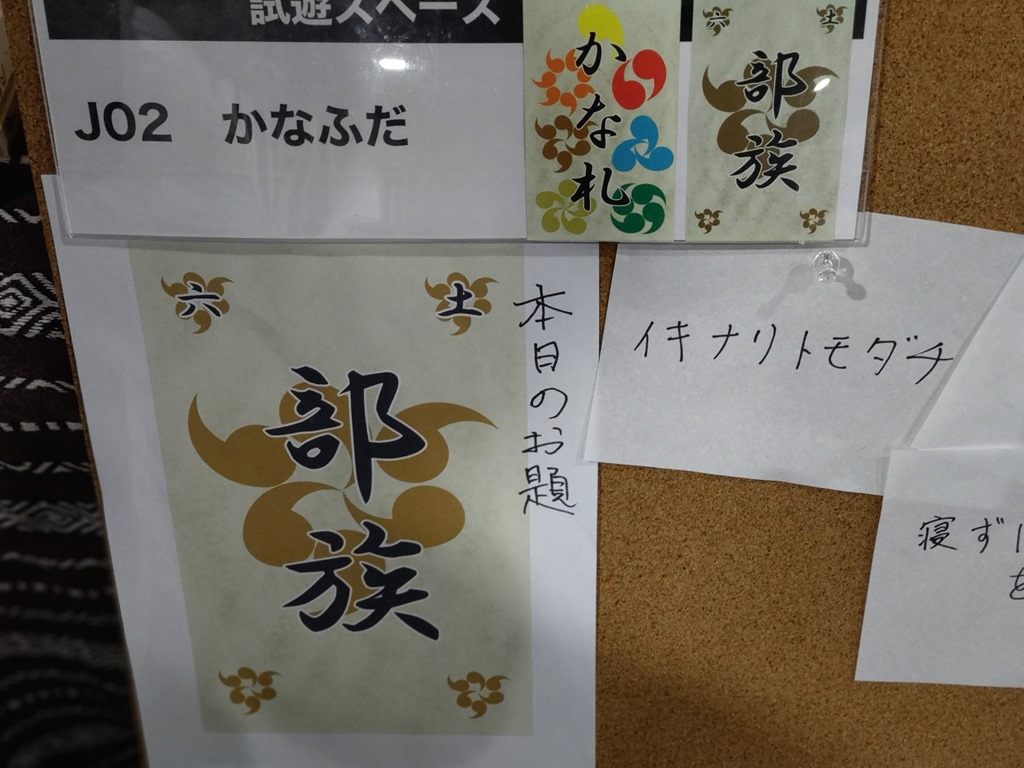 試遊スペース
J02 かなふだ
かな札
六 土
部族
六 土
部族
本日のお題
イキナリトモダチ
寝ず